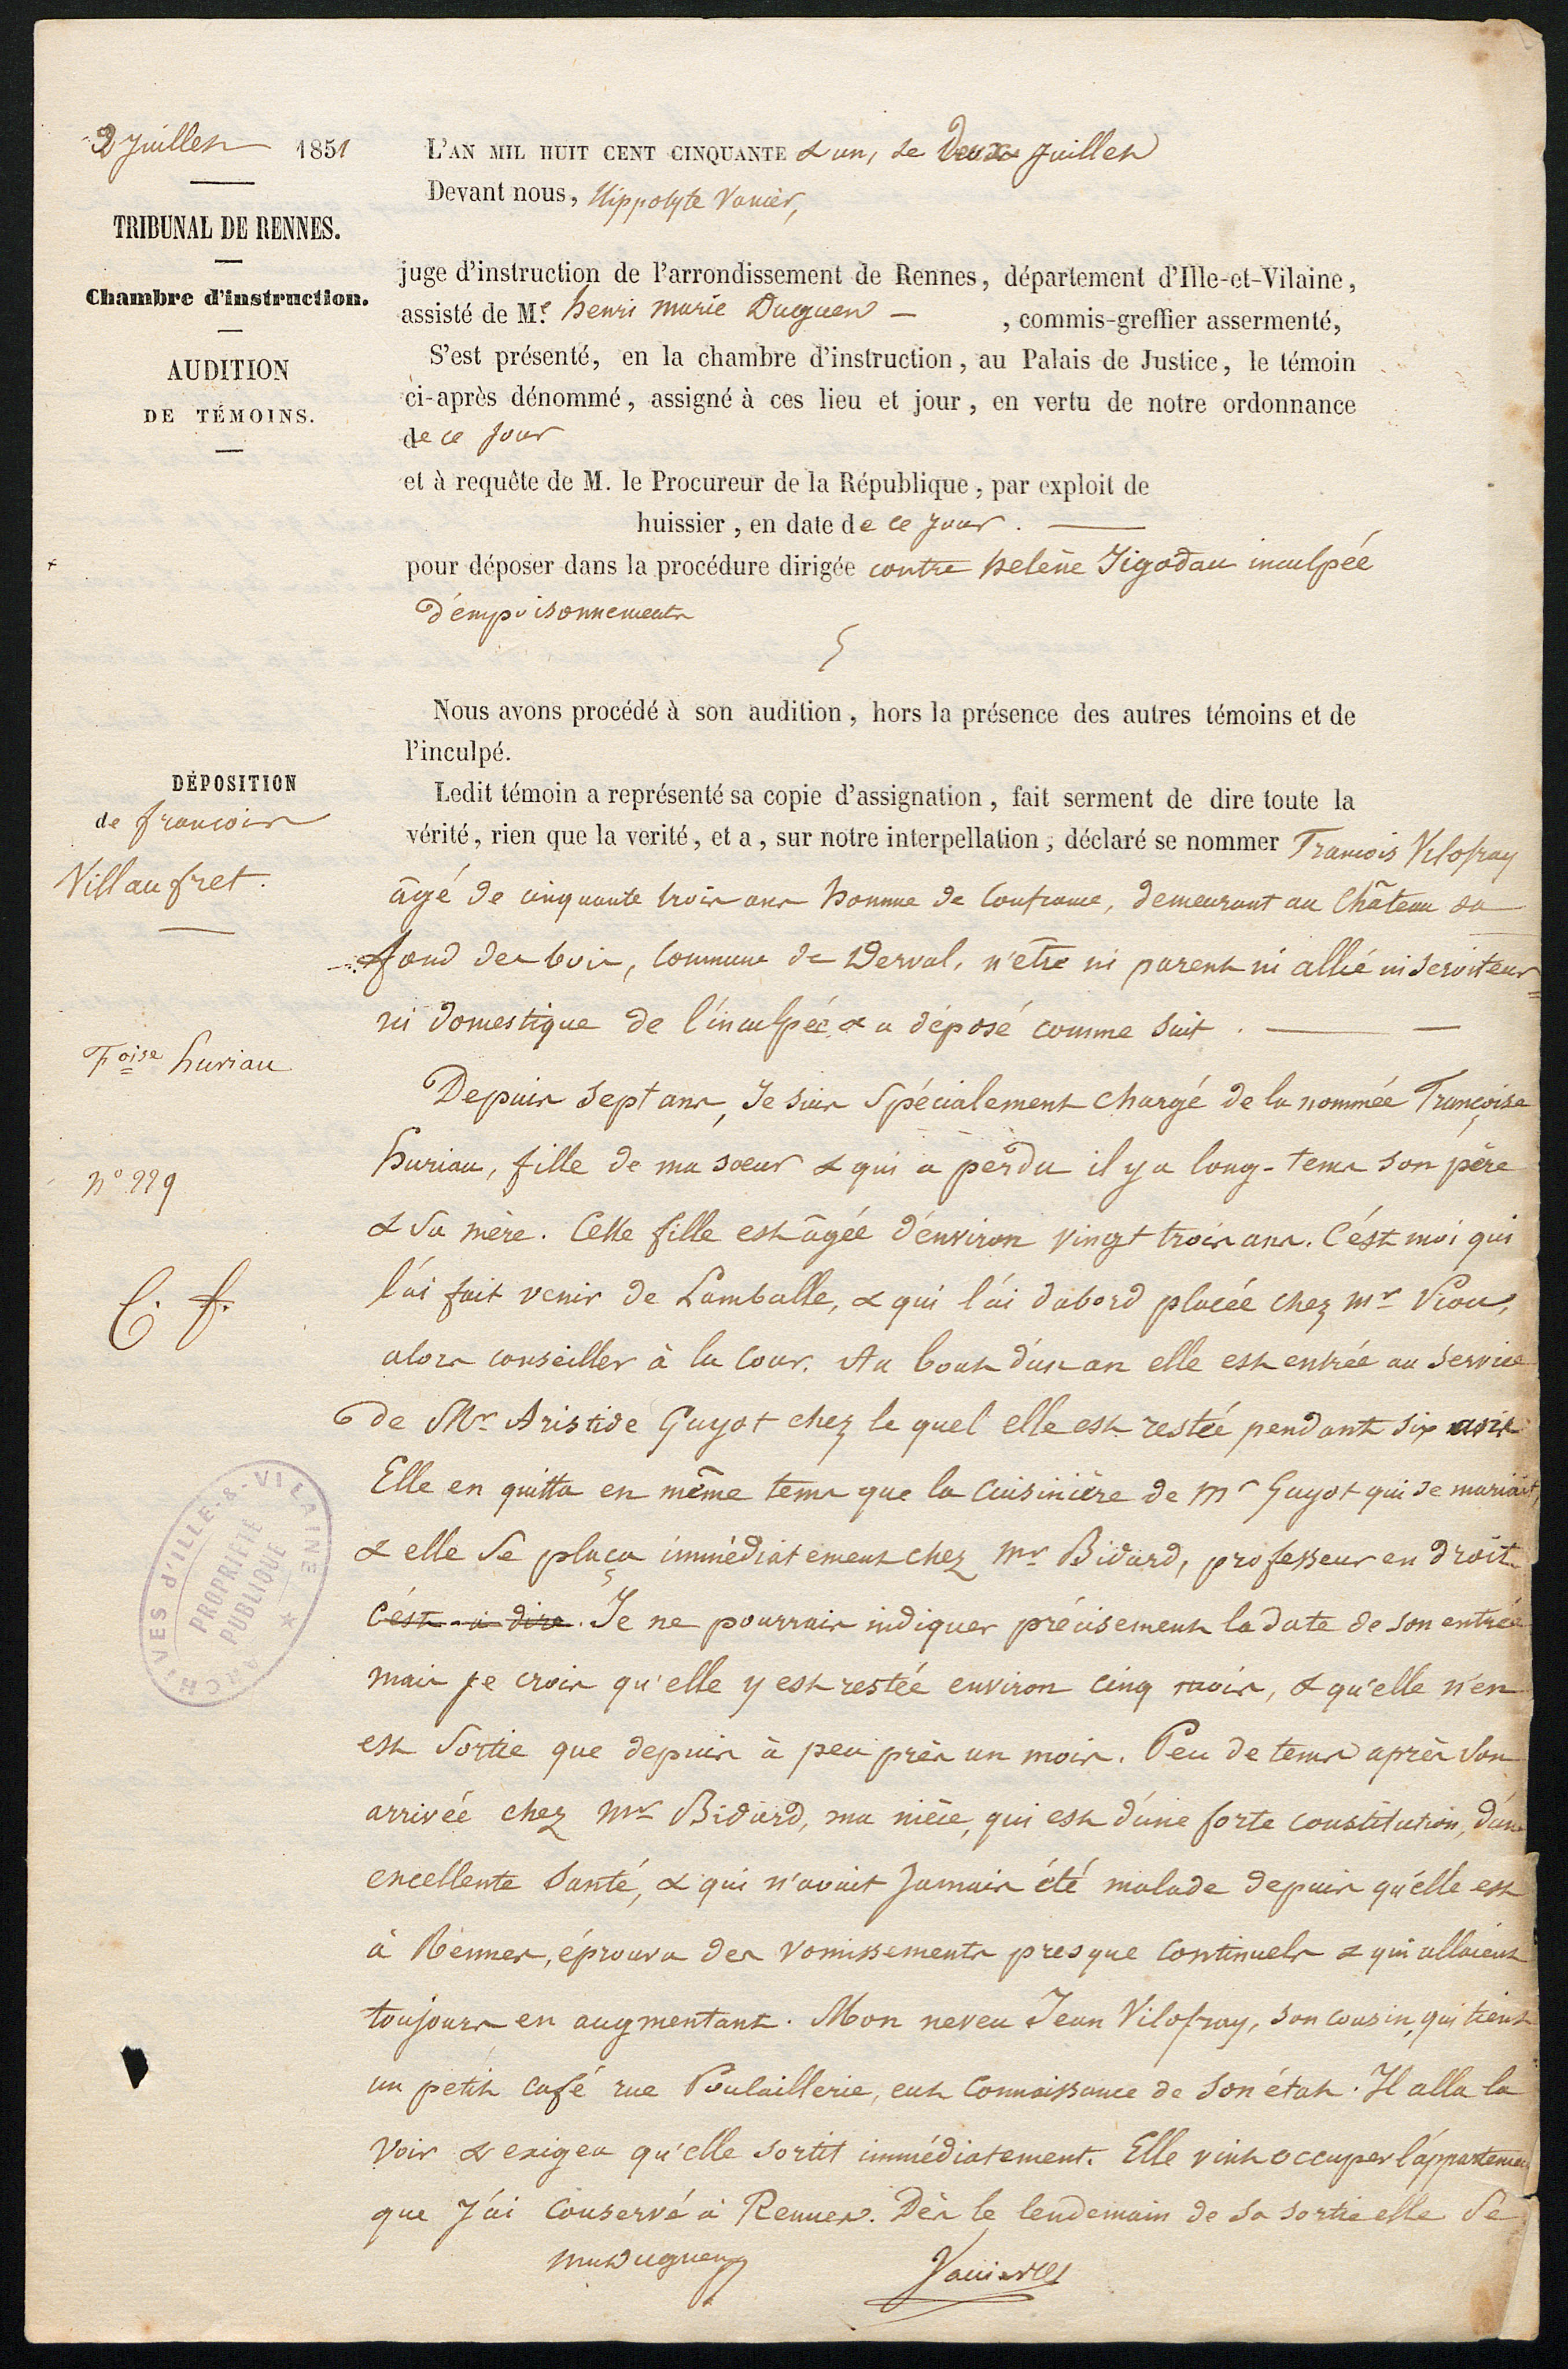 2 Juillet 1851
TRIBUNAL DE RENNES.
Chambre d'instruction.
AUDITION
DE TÉMOINS.
L'AN MIL HUIT CENT CINQUANTE & un, le deux Juillet
Devant nous, Hippolyte Vannier,
juge d'instruction de l'arrondissement de Rennes, département d'Ille-et-Vilaine,
assisté de Me. henri marie Duguen — , commis-greffier assermenté,
S'est présenté, en la chambre d'instruction, au Palais de Justice, le témoin
ci-après dénommé, assigné à ces lieu et jour, en vertu de notre ordonnance
de ce jour
et à requête de M. le Procureur de la République, par exploit de
huissier, en date de ce jour.
pour déposer dans la procédure dirigée contre helène Jégodau inculpée
d'empoisonnements
Nous avons procédé à son audition, hors la présence des autres témoins et de
l'inculpé.
DÉPOSITION
de françois
Villaufret.
Foise huriau
n° 229
C. f.
Ledit témoin a représenté sa copie d'assignation, fait serment de dire toute la
vérité, rien que la verité, et a, sur notre interpellation, déclaré se nommer François Vilofray
âgé de cinquante trois ans homme de Confiance, demeurant au Château du
fond des bois, Commune de Derval, n'être ni parent ni allié ni serviteur
ni domestique de l'inculpée & a déposé comme suit.
Depuis sept ans, Je suis Spécialement chargé de la nommée Françoise
huriau, fille de ma soeur & qui a perdu il y a long-tems son père
& sa mère. Cette fille est âgée d'environ vingt trois ans. C'est moi qui
l'ai fait venir de Lamballe, & qui l'ai d'abord placée chez Mr Piou,
alors conseiller à la Cour. Au bout d'un an elle est entrée au service
de Mr Aristide Guyot chez le quel elle est restée pendant six mois
Elle en quitta en même tems que la Cuisinière de Mr Guyot qui se mariait,
& elle se plaça immédiatement chez Mr Bidard, professeur en droit
C'est-à dire. Je ne pourrais indiquer précisement la date de son entrée
mais je crois qu'elle y est restée environ cinq mois, & qu'elle n'en
est Sortie que depuis à peu près un mois. Peu de tems après son
arrivée chez Mr Bidard, ma nièce, qui est d'une forte constitution, d'une
excellente Santé, & qui n'avait Jamais été malade depuis qu'elle est
à Rennes, éprouva des vomissements presque continuels & qui allaient
toujours en augmentant. Mon neveu Jean Vilofray, son cousin, qui tient
un petit café rue Poulaillerie, eut Connaissance de son état. Il alla la
voir & exigea qu'elle sortit immédiatement. Elle vint occuper l'appartement
que J'ai Conservé à Rennes. Dès le lendemain de sa sortie elle se
Duguen
Vannier
ARCHIVES D'ILLE-&-VILAINE
PROPRIÉTÉ
PUBLIQUE